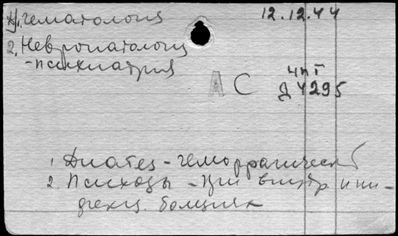 1. Гематология
12.12.44
2. Невропатология
-психиатрия
АС
чпГ
Д4295
1. Диатез - геморрагическ
2. Психозы - при внутр и ин-
фекц. болезнях